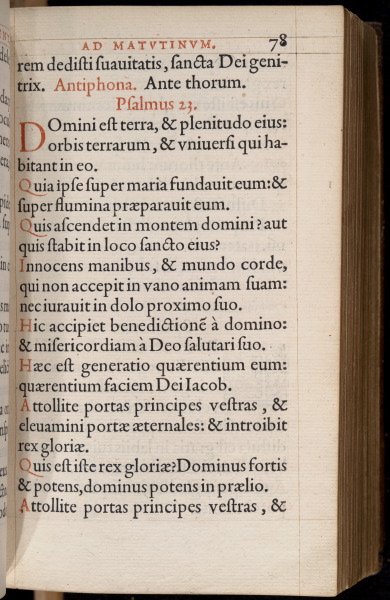 AD MATVTINVM. 78
rem dedisti suauitatis, sancta Dei geni-
trix. Antiphona. Ante thorum.
Psalmus 23.
DOmini est terra, & plenitudo eius:
orbis terrarum, & vniuersi qui ha-
bitant in eo.
Quia ipse super maria fundauit eum:&
super flumina præparauit eum.
Quis ascendet in montem domini? aut
quis stabit in loco sancto eius?
Innocens manibus, & mundo corde,
qui non accepit in vano animam suam:
nec iurauit in dolo proximo suo.
Hic accipiet benedictionẽ à domino:
& misericordiam à Deo salutari suo.
Hæc est generatio quærentium eum:
quærentium faciem Dei Iacob.
Attollite portas principes vestras, &
eleuamini portæ æternales: & introibit
rex gloriæ.
Quis est iste rex gloriæ? Dominus fortis
& potens, dominus potens in prælio.
Attollite portas principes vestras, &